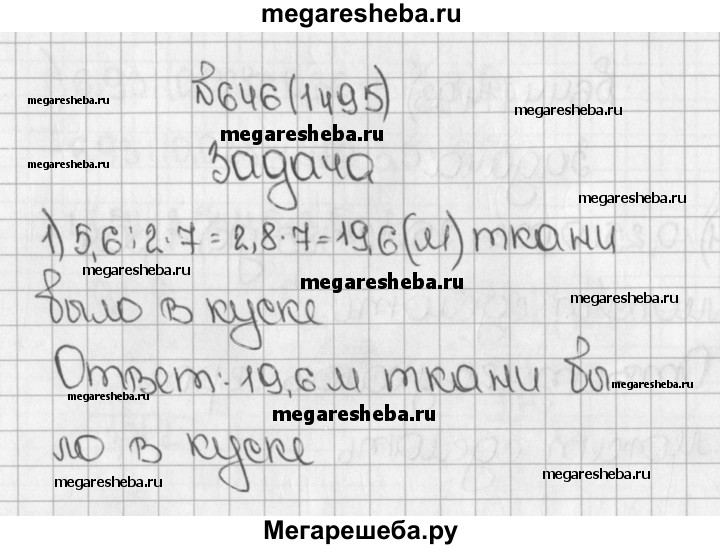 megaresheba.ru
№646(1495)
megaresheba.ru
megaresheba.ru
Задача
megaresheba.ru
megaresheba.ru
1) 5,6:2·7=2,8·7=19,6(м) ткани
megaresheba.ru
megaresheba.ru
было в куске
megaresheba.ru
Ответ: 19,6 м ткани бы
megaresheba.ru
megaresheba.ru
ло в куске
megaresheba.ru
megaresheba.ru
Мегарешеба.ру